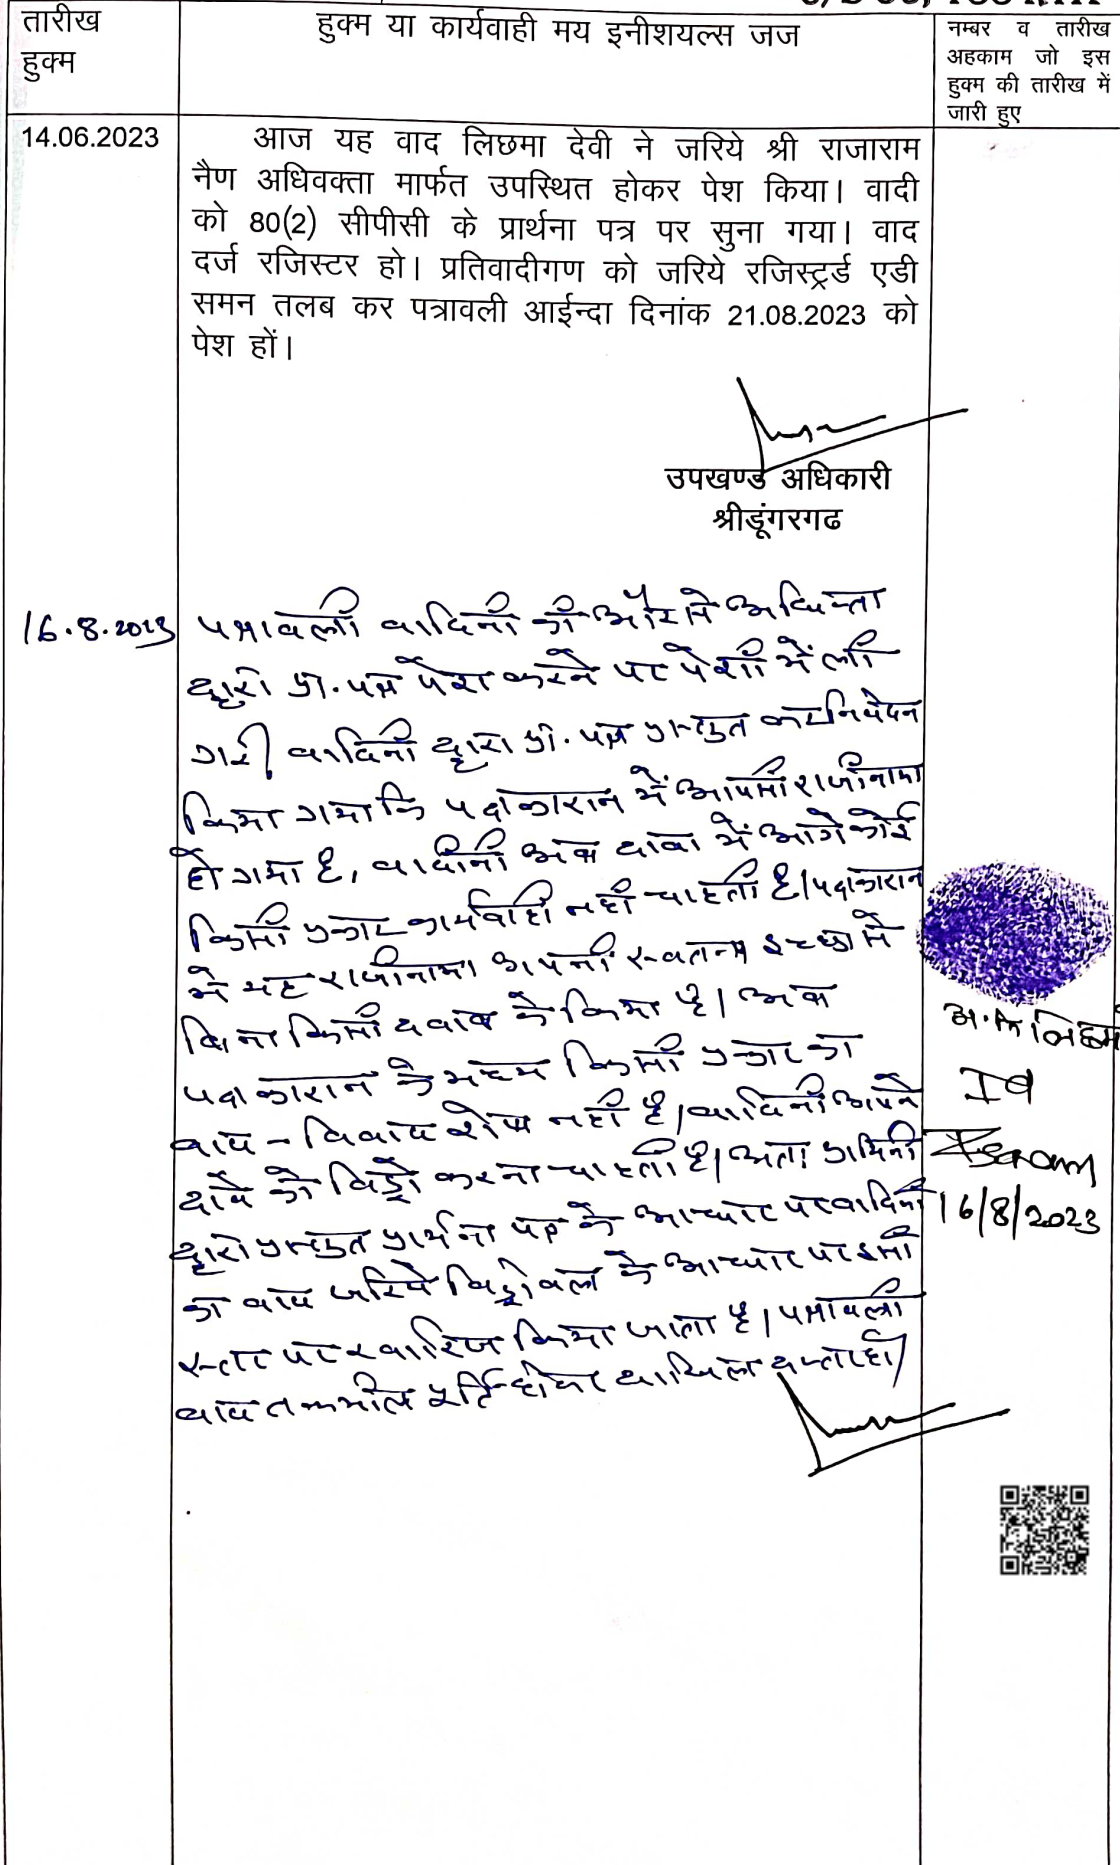 तारीख
हुक्म
हुक्म या कार्यवाही मय इनीशयल्स जज
नम्बर व तारीख
अहकाम जो इस
हुक्म की तारीख में
जारी हुए
14.06.2023
आज यह वाद लिछमा देवी ने जरिये श्री राजाराम
नैण अधिवक्ता मार्फत उपस्थित होकर पेश किया। वादी
को 80(2) सीपीसी के प्रार्थना पत्र पर सुना गया। वाद
दर्ज रजिस्टर हो। प्रतिवादीगण को जरिये रजिस्ट्रर्ड एडी
समन तलब कर पत्रावली आईन्दा दिनांक 21.08.2023 को
पेश हों।
उपखण्ड अधिकारी
श्रीडूंगरगढ
16.8.2023
पत्रावली वादिनी की और से अधिवक्ता
द्वारा प्रा. पत्र पेश करने पर पेशी में ली
गई। वादिनी द्वारा प्रा. पत्र प्रस्तुत कर निवेदन
किया गया कि पक्षकारान में आपसी राजीनामा
हो गया है, वादीनी अब दावा में आगे कोई
किसी प्रकार कार्यवाही नहीं चाहती है। पक्षकारान
ने यह राजीनामा अपनी स्वतन्त्र इच्छा से
बिना किसी दबाव के किया है। अब
पक्षकारान के मध्य किसी प्रकार का
वाद - विवाद शेष नहीं है। वादिनी अपने
दावे को विड्रो करना चाहती है। अतः प्रार्थिनी
द्वारा प्रस्तुत प्रार्थना पत्र के आधार पर वादिनी
का वाद जरिये विड्रोवल के आधार पर इसी
स्तर पर खारिज किया जाता है। पत्रावली
बाद तकमील पूर्ति होकर दाखिल दफ्तर हो।
अ.नि लिछमा
ID
16/8/2023